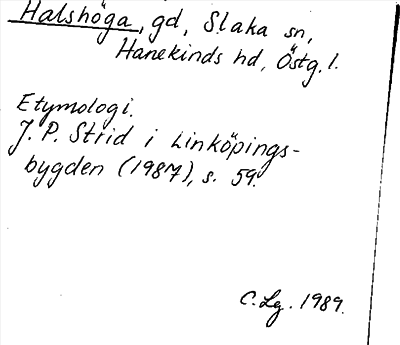 Halshöga, gd, Slaka sn,
Hanekinds hd, Östg. l.
Etymologi.
J. P. Strid i Linköpings-
bygden (1987), s. 59.
C. Lg. 1989.